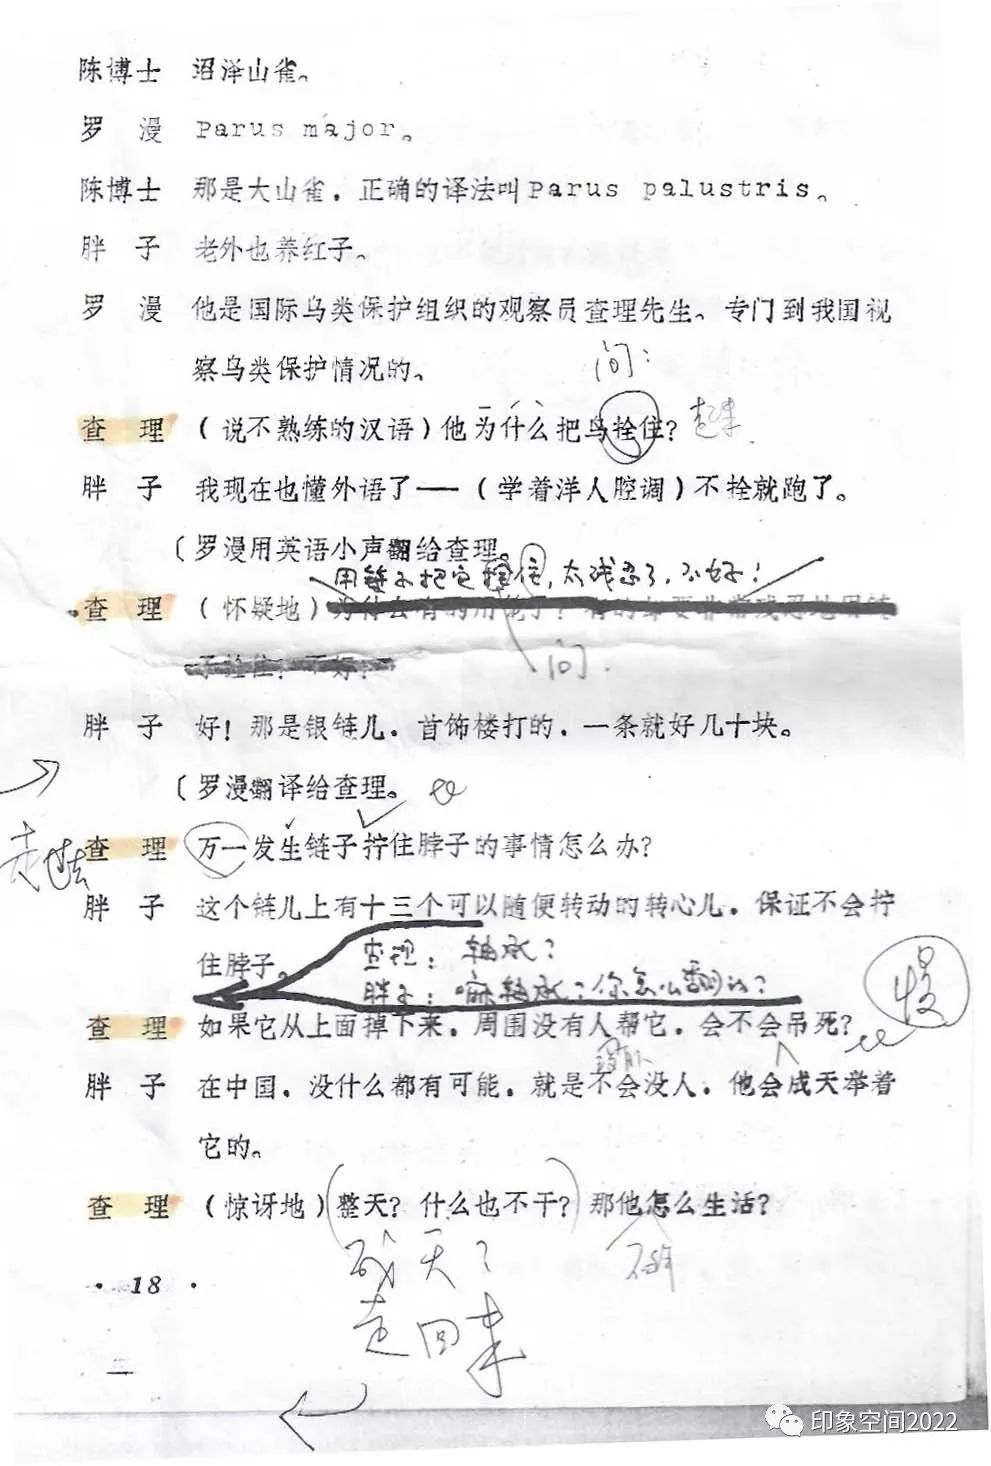 陈博士 沼泽山雀。
罗 漫 Parus major。
陈博士 那是大山雀，正确的译法叫Parus palustris。
胖 子 老外也养红子。
罗 漫 他是国际鸟类保护组织的观察员查理先生。专门到我国视
察鸟类保护情况的。
问：
查 理 （说不熟练的汉语）他为什么把鸟拴住？
起来
胖 子 我现在也懂外语了——（学着洋人腔调）不拴就跑了。
〔罗漫用英语小声翻给查理。
用链子把它拴住，太残忍了，不好！
查 理 （怀疑地）
问
胖 子 好！那是银链儿，首饰楼打的，一条就好几十块。
〔罗漫翻译给查理。
查 理 万一发生链子拧住脖子的事情怎么办？
走过去
胖 子 这个链儿上有十三个可以随便转动的转心儿，保证不会拧
住脖子。
查理：轴承？
胖子：嘛轴承？你怎么翻的？
慢
查 理 如果它从上面掉下来，周围没有人帮它，会不会吊死？
胖 子 在中国，没什么都有可能，就是不会没人，他会成天举着
它的。
查 理 （惊讶地）整天？什么也不干？那他怎么生活？
成天？
走回来
· 18 ·
印象空间2022